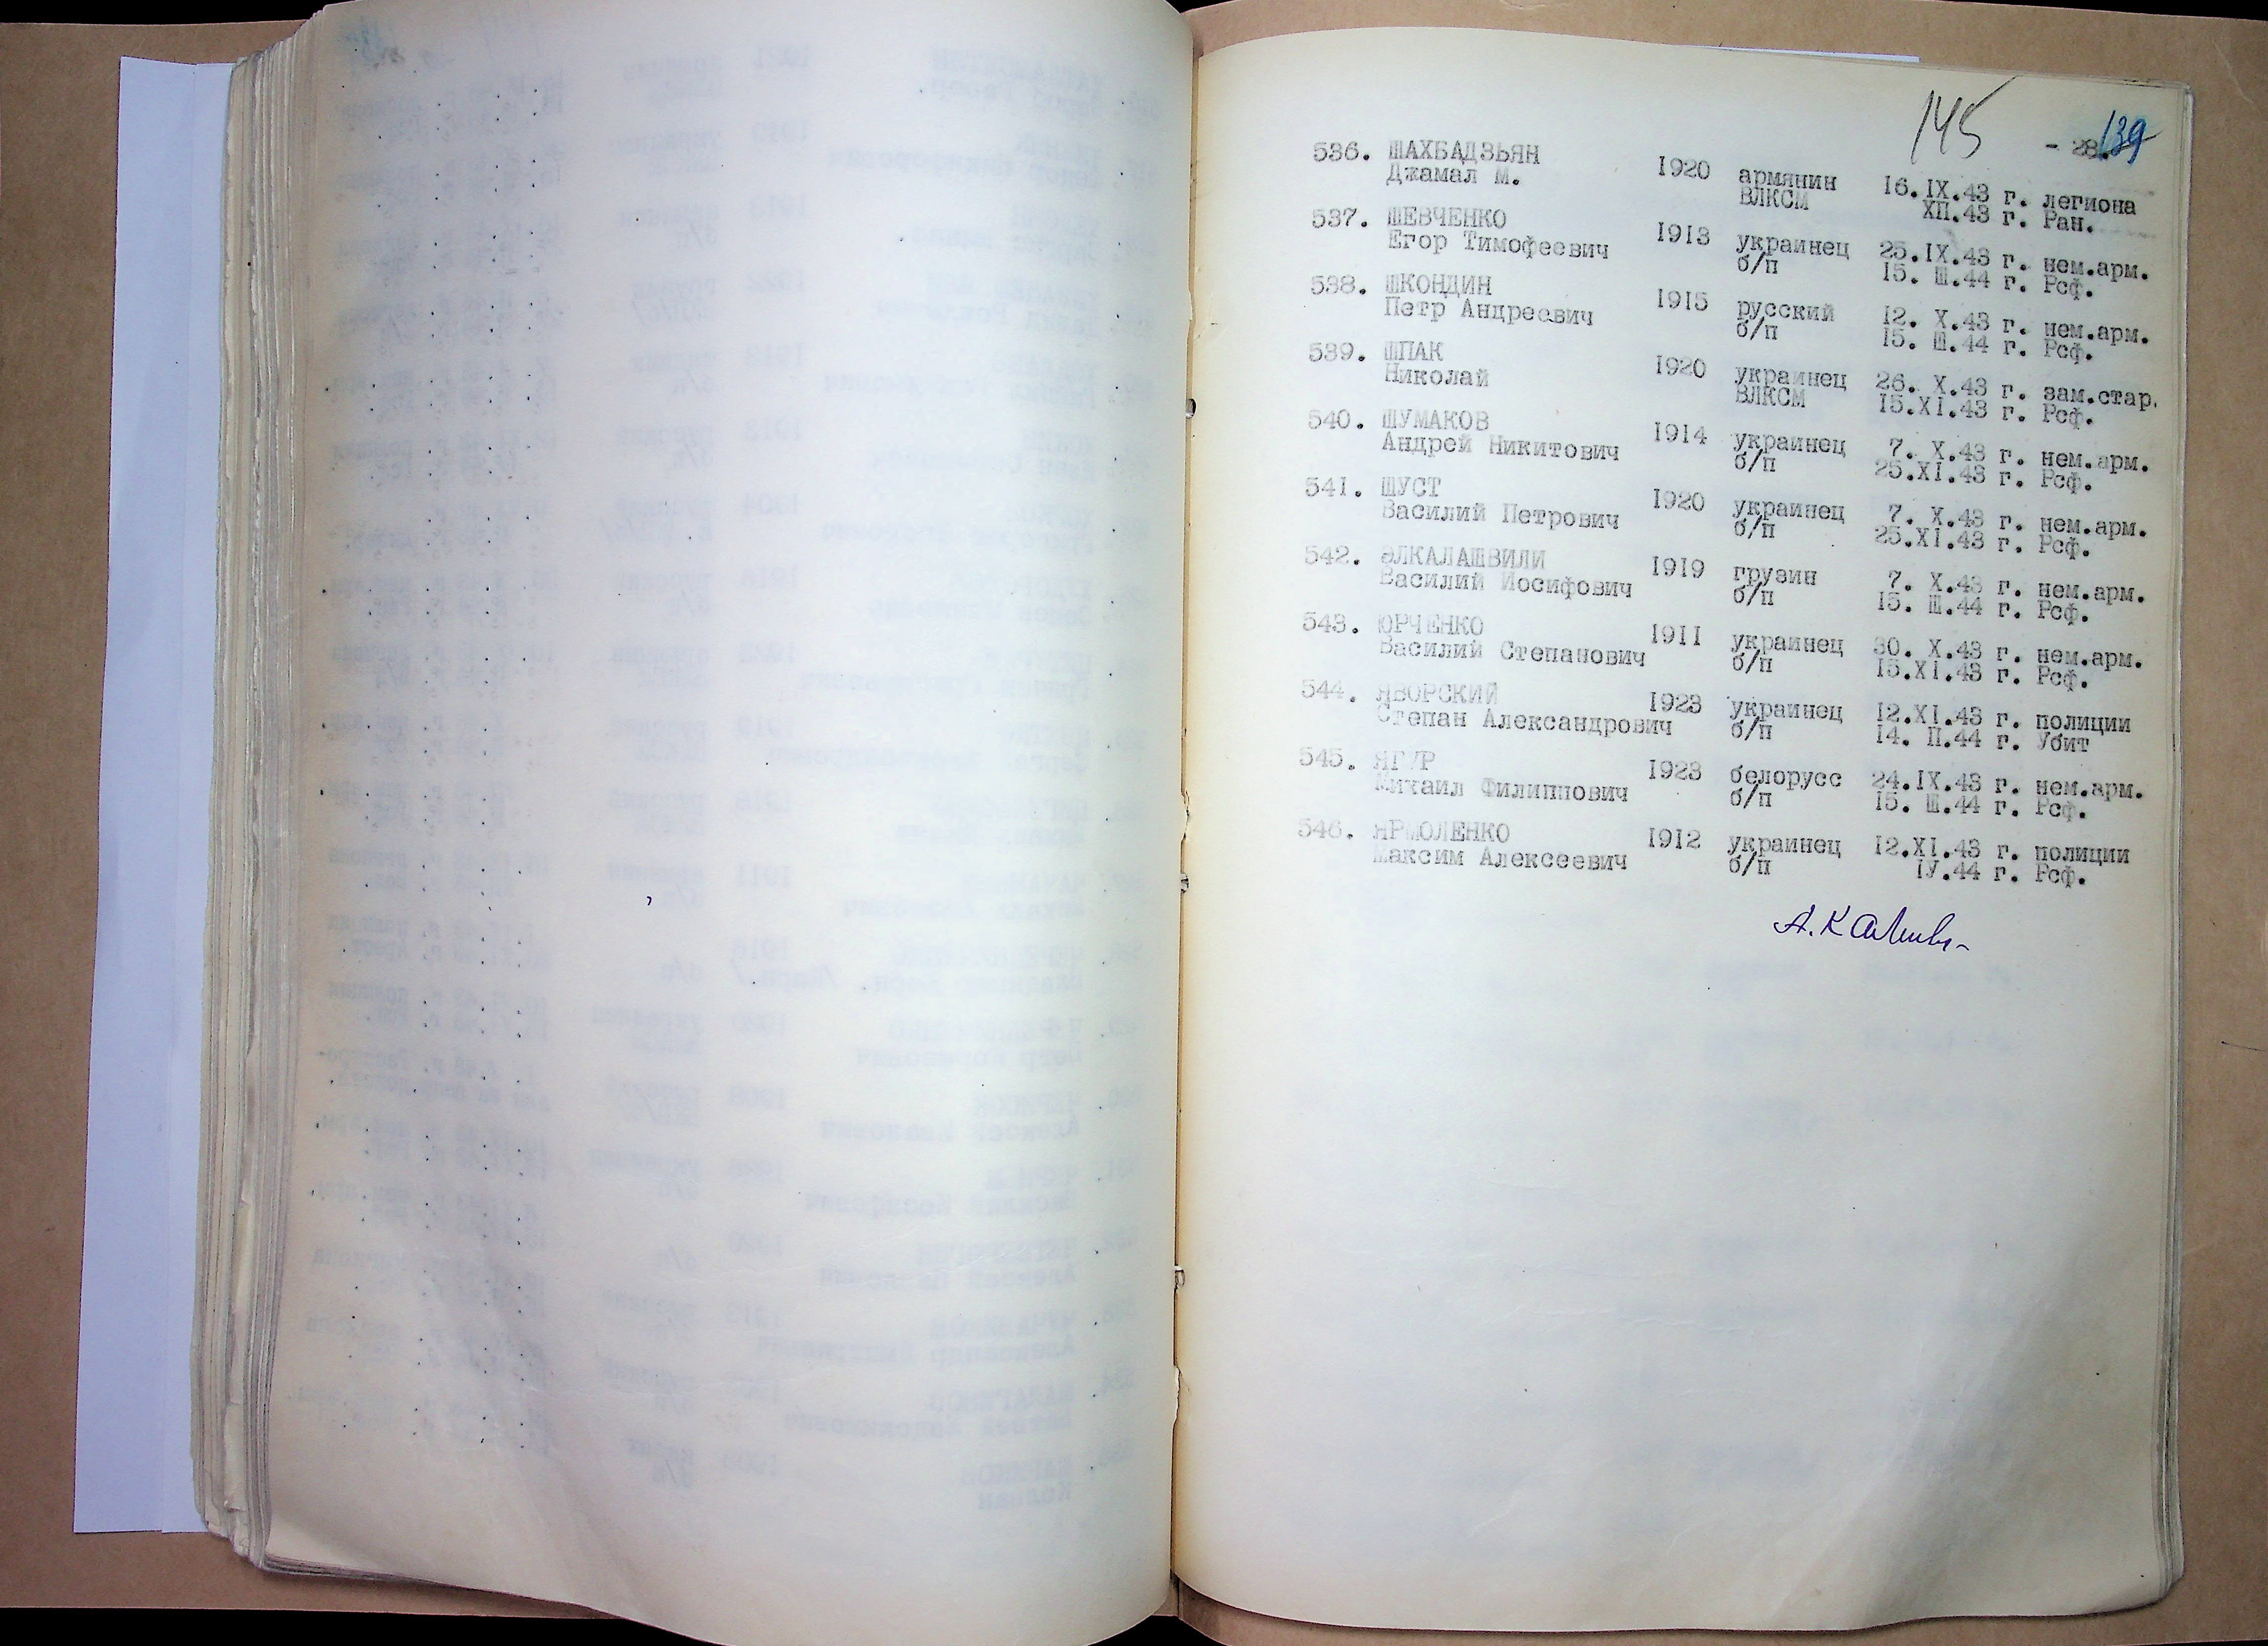 145
- 28. 139
536. ШАХБАДЗЬЯН 1920 армянин 16.IX.43 г. легиона
Джамал М. ВЛКСМ XП.43 г. Ран.
537. ШЕВЧЕНКО 1913 украинец 25.IX.43 г. нем.арм.
Егор Тимофеевич б/п 15. Ш.44 г. Рсф.
538. ШКОНДИН 1915 русский 12. X.43 г. нем.арм.
Петр Андреевич б/п 15. Ш.44 г. Рсф.
539. ШПАК 1920 украинец 26. X.43 г. зам.стар.
Николай ВЛКСМ 15.XI.43 г. Рсф.
540. ШУМАКОВ 1914 украинец 7. X.43 г. нем.арм.
Андрей Никитович б/п 25.XI.43 г. Рсф.
541. ШУСТ 1920 украинец 7. X.43 г. нем.арм.
Василий Петрович б/п 25.XI.43 г. Рсф.
542. ЭЛКАЛАШВИЛИ 1919 грузин 7. X.43 г. нем.арм.
Василий Иосифович б/п 15. Ш.44 г. Рсф.
543. ЮРЧЕНКО 1911 украинец 30. X.43 г. нем.арм.
Василий Степанович б/п 15.XI.43 г. Рсф.
544. ЯВОРСКИЙ 1923 украинец 12.XI.43 г. полиции
Степан Александрович б/п 14. П.44 г. Убит
545. ЯГУР 1923 белорусс 24.IX.43 г. нем.арм.
Михаил Филиппович б/п 15. Ш.44 г. Рсф.
546. ЯРМОЛЕНКО 1912 украинец 12.XI.43 г. полиции
Максим Алексеевич б/п IУ.44 г. Рсф.